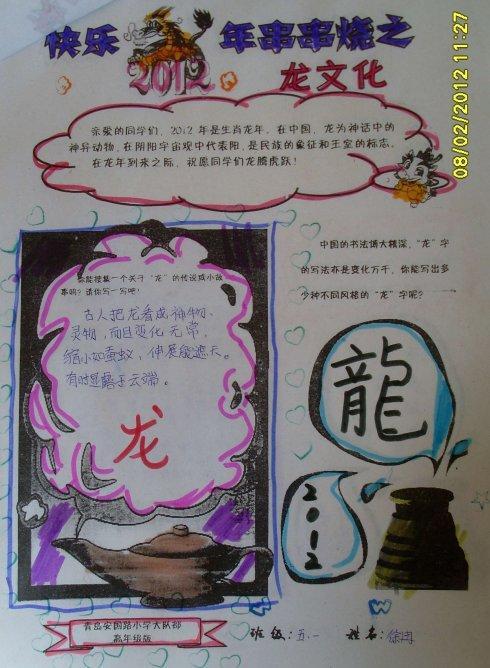 快乐 年串串烧之
2012
龙文化
08/02/2012 11:27
亲爱的同学们，2012 年是生肖龙年。在中国，龙为神话中的
神异动物，在阴阳宇宙观中代表阳，是民族的象征和王室的标志。
在龙年到来之际，祝愿同学们龙腾虎跃！
你能搜集一个关于“龙”的传说或小故
事吗？请你写一写吧！
古人把龙看成神物、
灵物，而且变化无常，
缩小如蚕蚁，伸展能遮天。
有时显露于云端。
龙
中国的书法博大精深，“龙”字
的写法亦是变化万千，你能写出多
少种不同风格的“龙”字呢？
龍
2012
青岛安国路小学大队部
高年级版
班级：五.一 姓名：徐